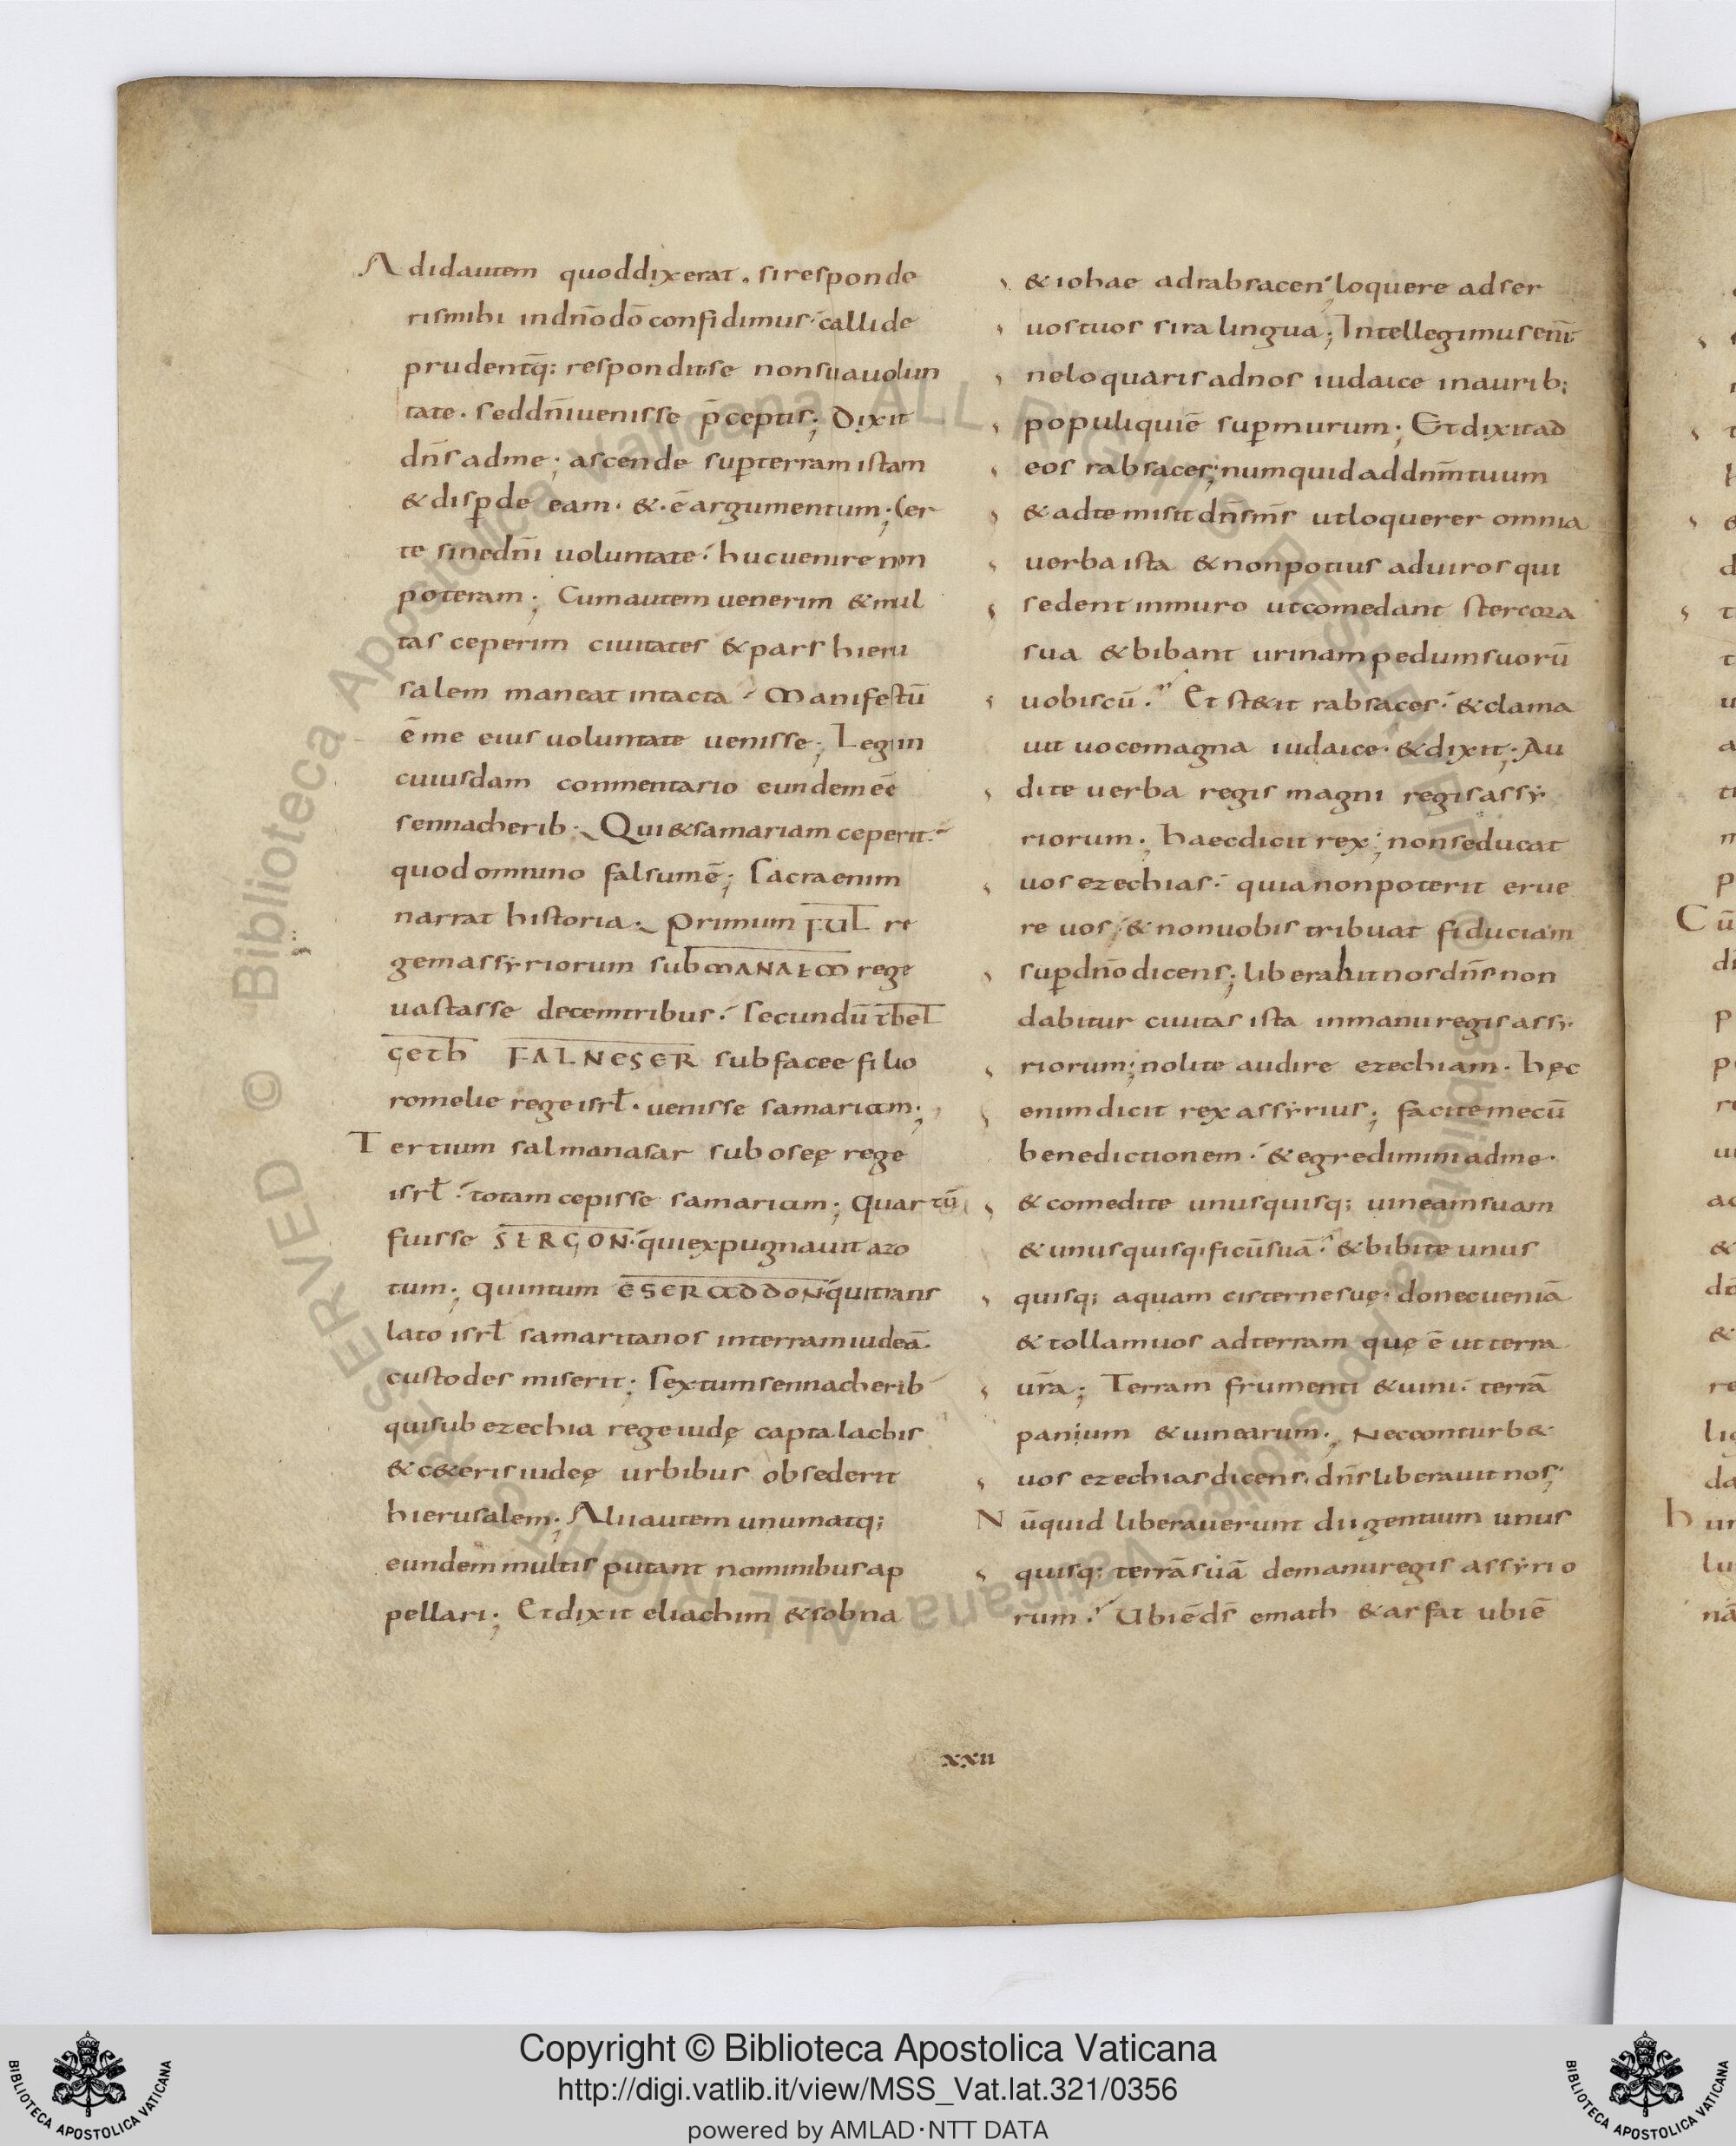 Ad id autem quod dixerat. si responde
ris mihi in dn̄o dō confidimus. callide
prudent̄q; respondit se non sua volun
tate. sed dn̄i uenisse p̄ceptis; Dixit
dn̄s ad me; ascende sup̱ terram istam
& disp̱de eam. &. ē argumentum; Cer
te sine dn̄i uoluntate. huc uenire non
poteram; Cum autem uenerim & mul
tas ceperim ciuitates & pars hieru
salem maneat intacta. Manifestū
ē me eius uoluntate uenisse; Legi in
cuiusdam commentario eundem eē
sennacherib. Qui & samariam ceperit.
quod omnino falsum ē; Sacra enim
narrat historia. Primum FUL re
gem assyriorum sub MANAEM rege
uastasse decem tribus. Secundū thel
geth FALNESER sub facee filio
romelie rege isrƚ. uenisse samariam;
Tertium salmanasar sub oseę rege
isrƚ. totam cepisse samariam; Quartū
fuisse SERGON. qui expugnauit azo
tum; Quintum ESERADDON. qui trans
lato isrƚ samaritanos in terram iudeā.
custodes miserit; Sextum sennacherib
qui sub ezechia rege iudę capta lachis
& c&eris iudeę urbibus obsederit
hierusalem; Alii autem unum atq;
eundem multis putant nominibus ap
pellari; Et dixit eliachim & sobna
& iohae ad rabsacen; loquere ad ser
uos tuos sira lingua; Intellegimus enī
ne loquaris ad nos iudaice in aurib;
populi qui ē sup̱ murum; Et dixit ad
eos rabsaces; numquid ad dn̄m tuum
& ad te misit dn̄s m̄s ut loquerer omnia
uerba ista & non potius ad uiros qui
sedent in muro ut comedant stercora
sua & bibant urinam pedum suorū
uobiscū. Et st&it rabsaces. & clama
uit uoce magna iudaice. & dixit; Au
dite uerba regis magni regis assy
riorum; haec dicit rex; non seducat
uos ezechias. quia non poterit erue
re uos. & non uobis tribuat fiduciam
sup̱ dn̄o dicens; liberabit nos dn̄s non
dabitur ciuitas ista in manu regis assy
riorum; nolite audire ezechiam. hęc
enim dicit rex assyrius; facite mecū
benedictionem. & egredimini ad me.
& comedite unusquisq; uineam suam
& unusquisq; ficū suā. & bibite unus
quisq; aquam cisterne suę. donec ueniā
& tollam uos ad terram quę ē ut terra
ur̄a; Terram frumenti & uini. terrā
panium & uinearum; Nec conturb&
uos ezechias dicens. dn̄s liberauit nos;
Nūquid liberauerunt dii gentium unus
quisq; terrā suā de manu regis assyrio
rum. Ubi ē ds̄ emath & arfat ubi ē
xxii
Copyright © Biblioteca Apostolica Vaticana
http://digi.vatlib.it/view/MSS_Vat.lat.321/0356
powered by AMLAD·NTT DATA